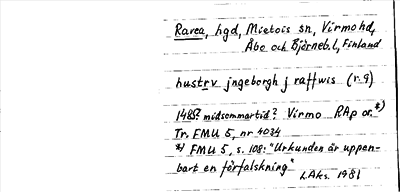 Ravea, hgd, Mietois sn, Virmo hd,
Åbo och Björneb. l, Finland
hustrv jngeborgh j raffwis (r. 9)
1485? midsommartid? Virmo RAp or. *)
Tr. FMU 5, nr 4034
*) FMU 5, s. 108: "Urkunden är uppen-
bart en förfalskning"
LAks. 1981